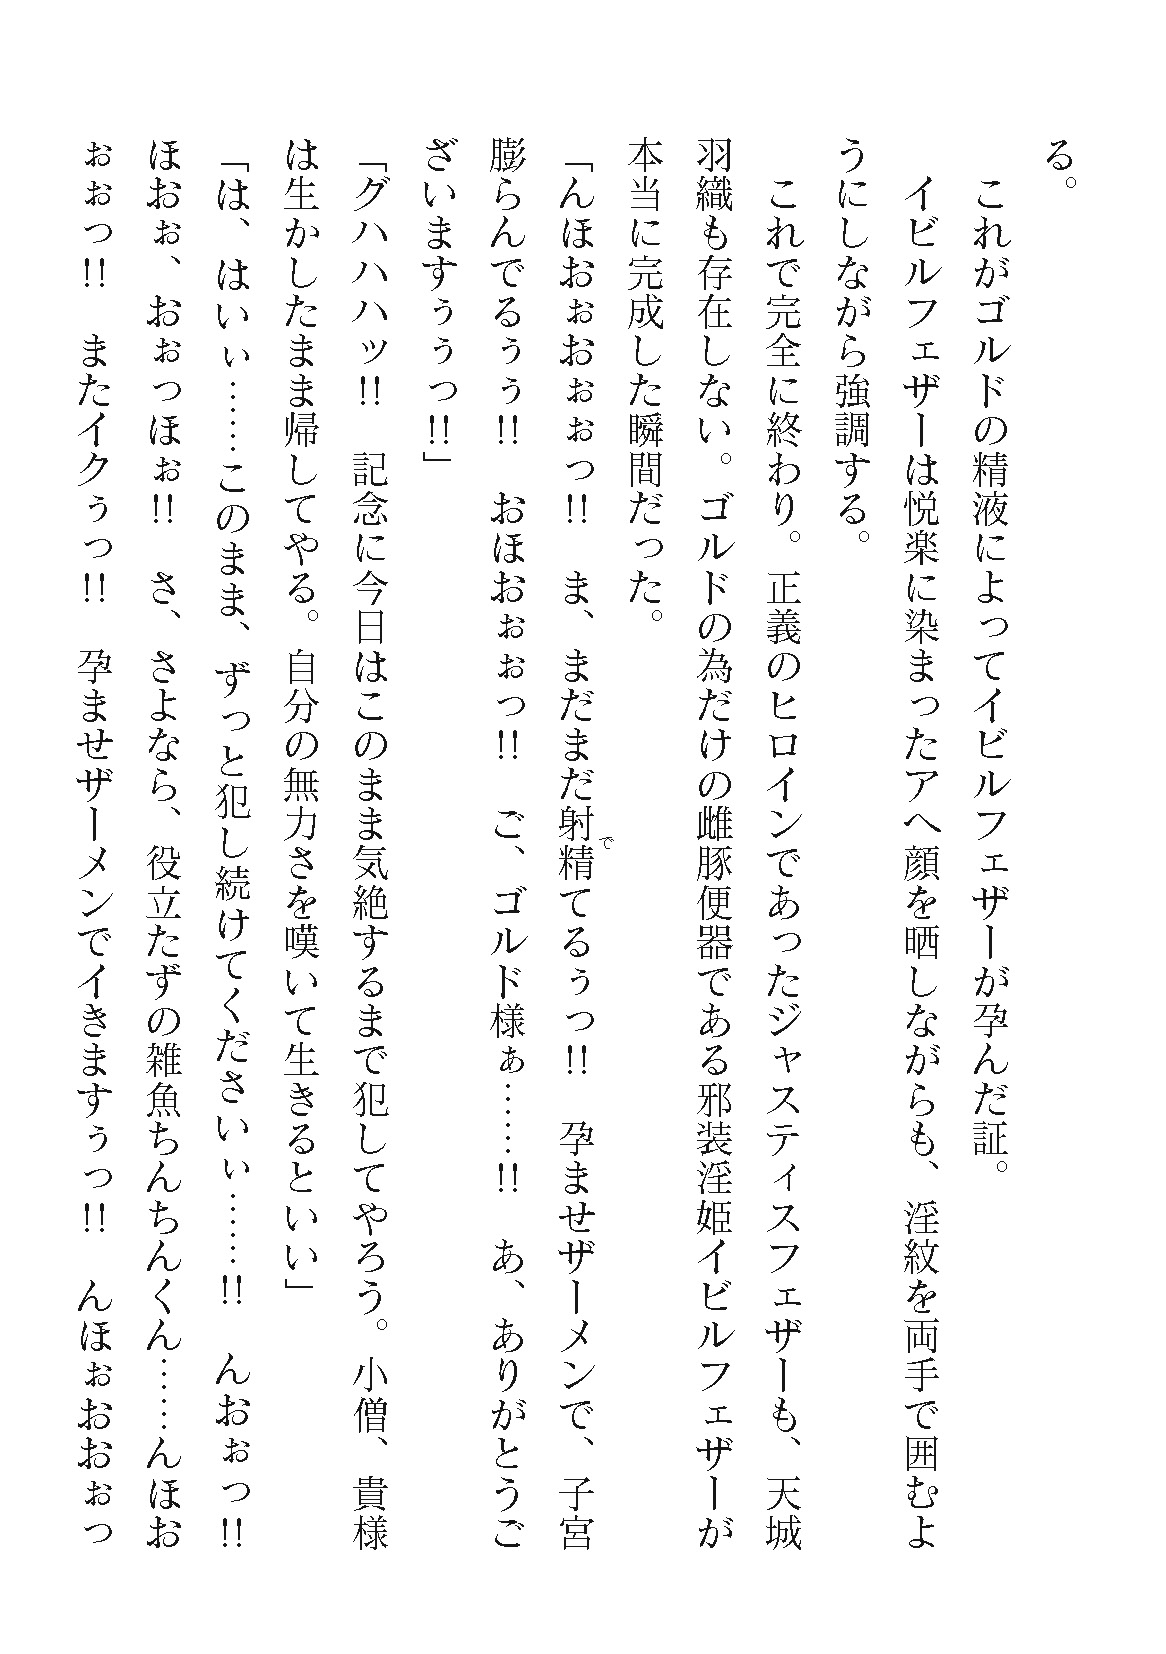 る。
　これがゴルドの精液によってイビルフェザーが孕んだ証。
　イビルフェザーは悦楽に染まったアヘ顔を晒しながらも、淫紋を両手で囲むよ
うにしながら強調する。
　これで完全に終わり。正義のヒロインであったジャスティスフェザーも、天城
羽織も存在しない。ゴルドの為だけの雌豚便器である邪装淫姫イビルフェザーが
本当に完成した瞬間だった。
「んほおぉおぉぉっ!!　ま、まだまだ射精てるぅっ!!　孕ませザーメンで、子宮
膨らんでるぅぅ!!　おほおぉぉっ!!　ご、ゴルド様ぁ……!!　あ、ありがとうご
ざいますぅぅっ!!」
「グハハハッ!!　記念に今日はこのまま気絶するまで犯してやろう。小僧、貴様
は生かしたまま帰してやる。自分の無力さを嘆いて生きるといい」
「は、はいぃ……このまま、ずっと犯し続けてくださいぃ……!!　んおぉっ!!
ほおぉ、おぉっほぉ!!　さ、さよなら、役立たずの雑魚ちんちんくん……んほお
ぉぉっ!!　またイクぅっ!!　孕ませザーメンでイきますぅっ!!　んほぉおおぉっ